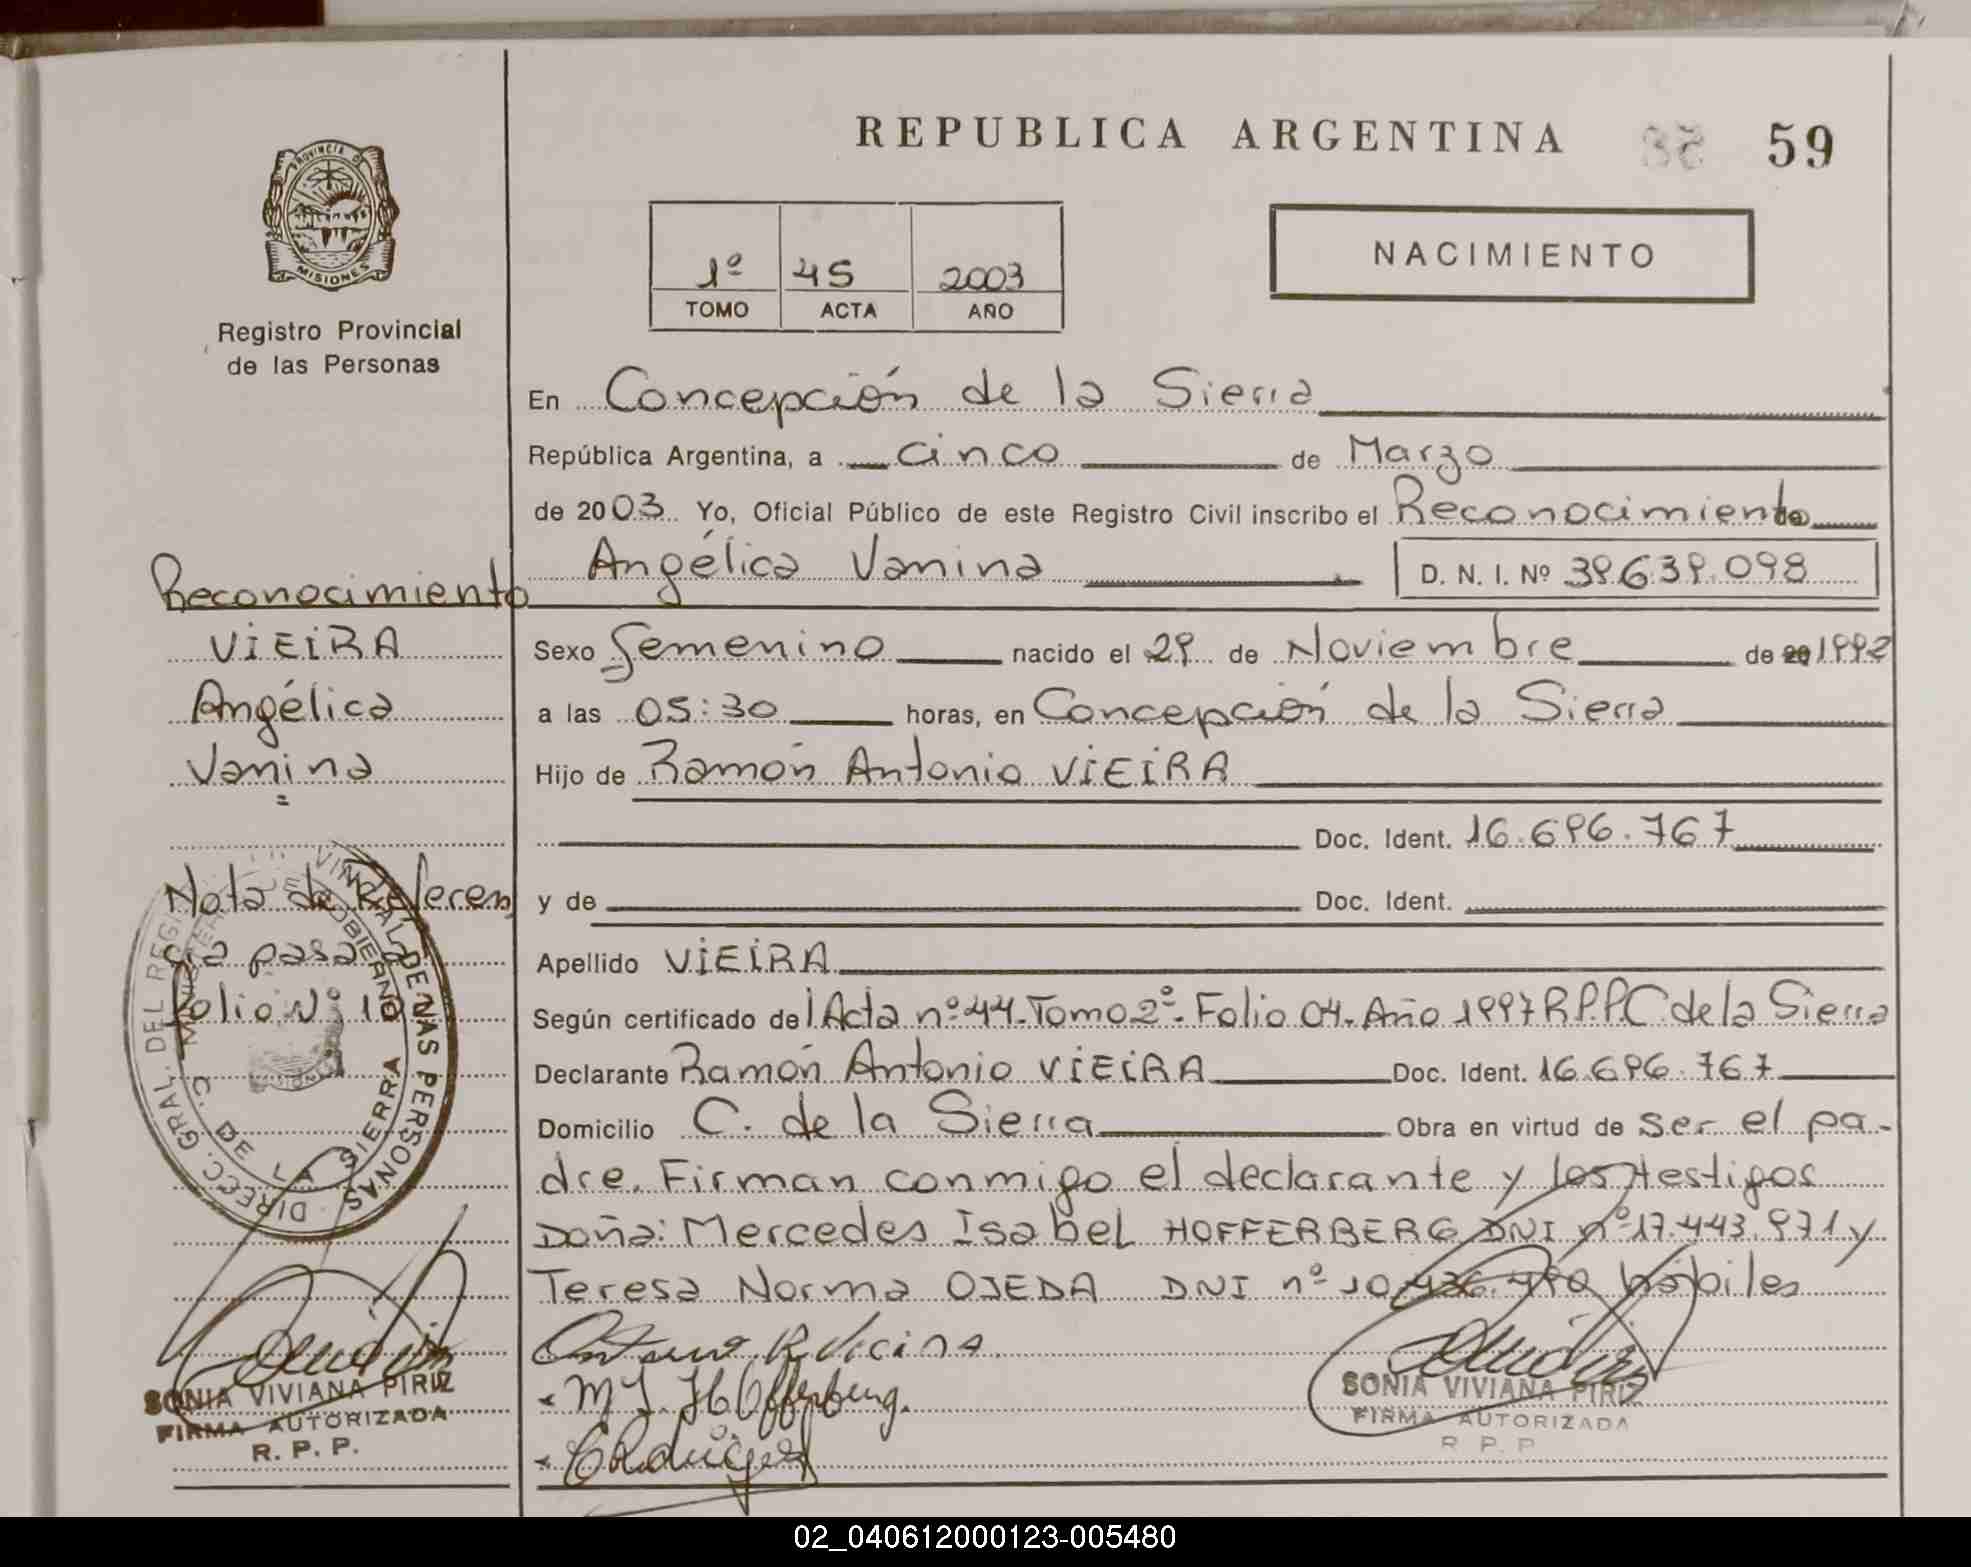 REPUBLICA ARGENTINA 59
PROVINCIA DE
MISIONES
Registro Provincial
de las Personas
1º 45 2003
TOMO ACTA AÑO
NACIMIENTO
En Concepción de la Sierra
República Argentina, a cinco de Marzo
de 2003 Yo, Oficial Público de este Registro Civil inscribo el Reconocimiento
Angélica Vanina D. N. I. Nº 39.639.098
Sexo Femenino nacido el 29 de Noviembre de 1992
a las 05:30 horas, en Concepción de la Sierra
Hijo de Ramón Antonio VIEIRA
Doc. Ident. 16.696.767
y de Doc. Ident.
Apellido VIEIRA
Según certificado del Acta nº 44-Tomo 2º-Folio 04-Año 1997 R.P.P.C. de la Sierra
Declarante Ramón Antonio VIEIRA Doc. Ident. 16.696.767
Domicilio C. de la Sierra Obra en virtud de ser el pa-
dre. Firman conmigo el declarante y los testigos
Doña: Mercedes Isabel HOFFERBERG DNI nº 17.443.971 y
Teresa Norma OJEDA DNI nº 10.436.490 hábiles
SONIA VIVIANA PIRIZ
FIRMA AUTORIZADA
R. P. P.
Reconocimiento
VIEIRA
Angélica
Vanina
Nota de Referen
cia pasa al
folio Nº 10
DIRECC. GRAL. DEL REG. PROVINCIAL DE LAS PERSONAS
MINISTERIO DE GOBIERNO
C. DE LA SIERRA
SONIA VIVIANA PIRIZ
FIRMA AUTORIZADA
R. P. P.
02_040612000123-005480